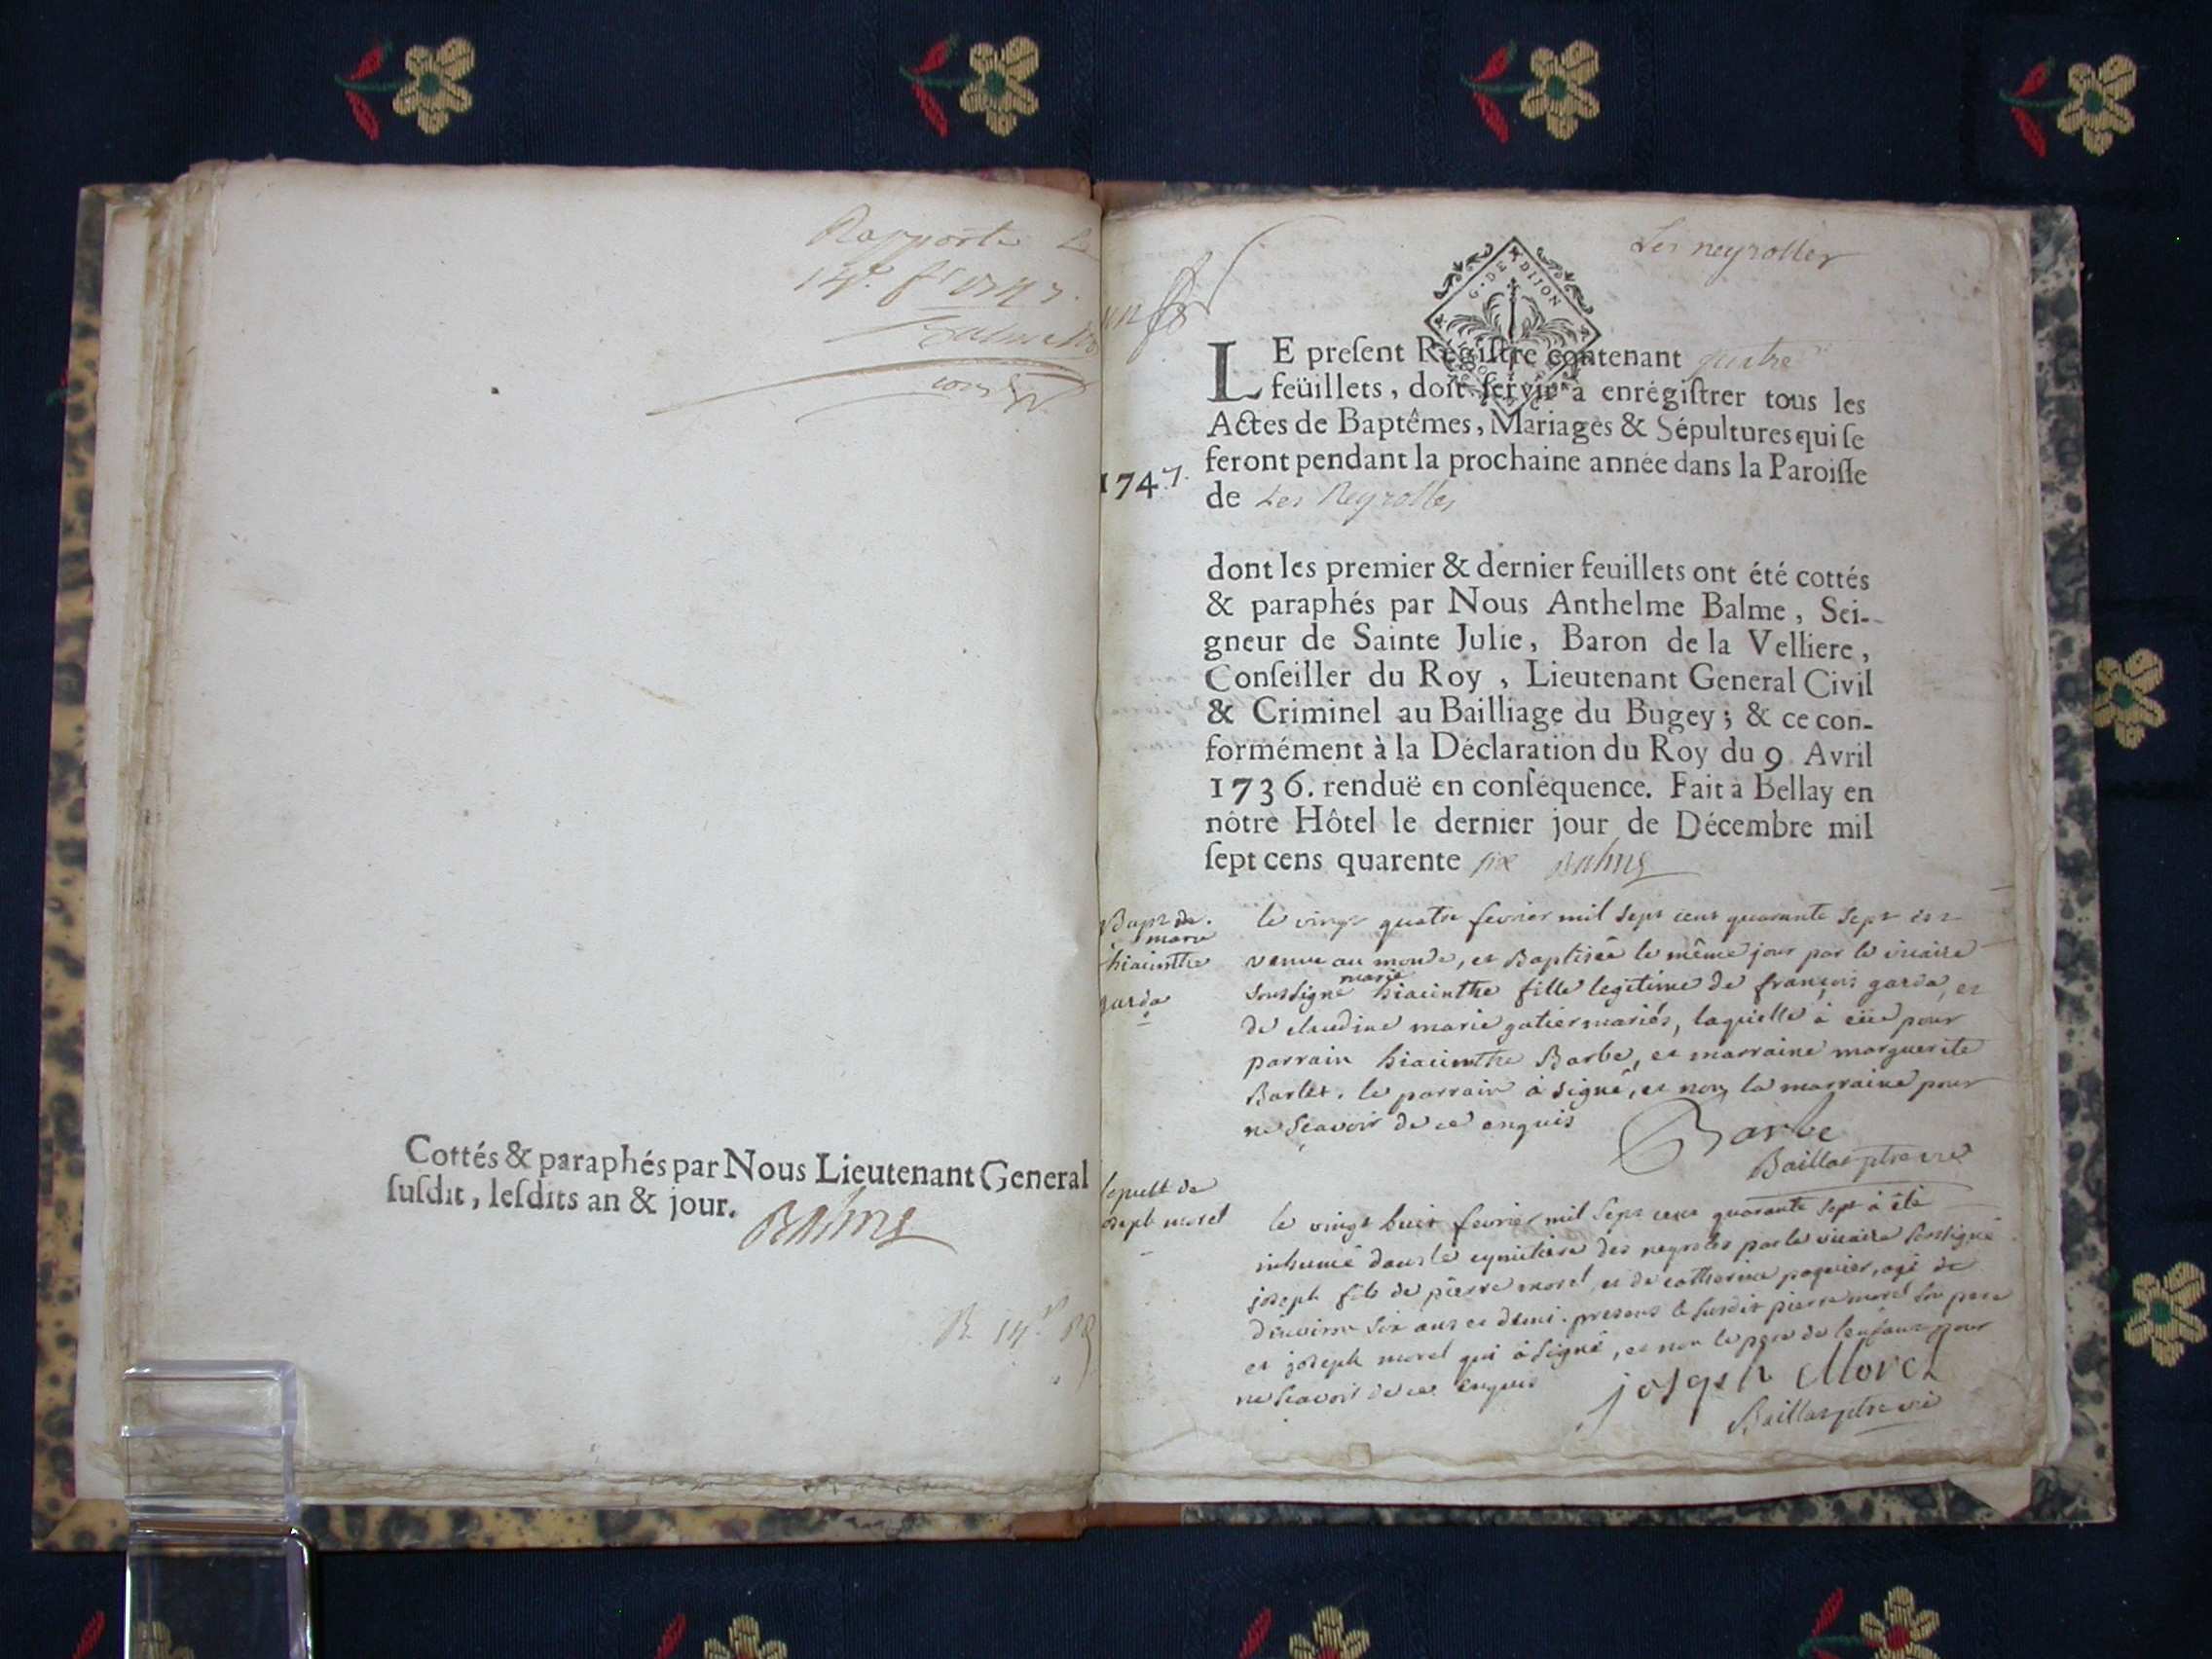 Rapporté Le
14e. fr 1747.
Balme
Cottés & paraphés par Nous Lieutenant General
susdit, lesdits an & jour.
Balme
Les neyrolles
G. DE DIJON
LE present Régistre contenant quatre
feüillets, doit servir à enrégistrer tous les
Actes de Baptêmes, Mariages & Sépultures qui se
feront pendant la prochaine année dans la Paroisse
1747.
de Les Neyrolles
dont les premier & dernier feuillets ont été cottés
& paraphés par Nous Anthelme Balme, Sei-
gneur de Sainte Julie, Baron de la Velliere,
Conseiller du Roy, Lieutenant General Civil
& Criminel au Bailliage du Bugey; & ce con-
formément à la Déclaration du Roy du 9. Avril
1736. renduë en conséquence. Fait à Bellay en
nôtre Hôtel le dernier jour de Décembre mil
sept cens quarente six Balme
Bapt de
marie
hiacinthe
garda
le vingt quatre fevrier mil sept cens quarante sept est
venue au monde, et Baptisée le même jour par le vicaire
soussigné marie hiacinthe fille legitime de françois garda, et
de claudine marie gatier mariés, laquelle a eüe pour
parrain hiacinthe Barbe, et marraine marguerite
Barlet. le parrain à signé, et non la marraine pour
ne sçavoir de ce enquis
Barbe
Baillat ptre vic
sepult de
joseph morel
le vingt huit fevrier mil sept cens quarante sept à été
inhumé dans le cymitiere des neyroles par le vicaire soussigné
joseph fils de pierre morel, et de catherine paquier, agé de
d'environ six ans et demi. presens le susdit pierre morel son pere
et joseph morel qui à signé, et non le pere de l'enfant pour
ne sçavoir de ce enquis
joseph Morel
Baillat ptre vic